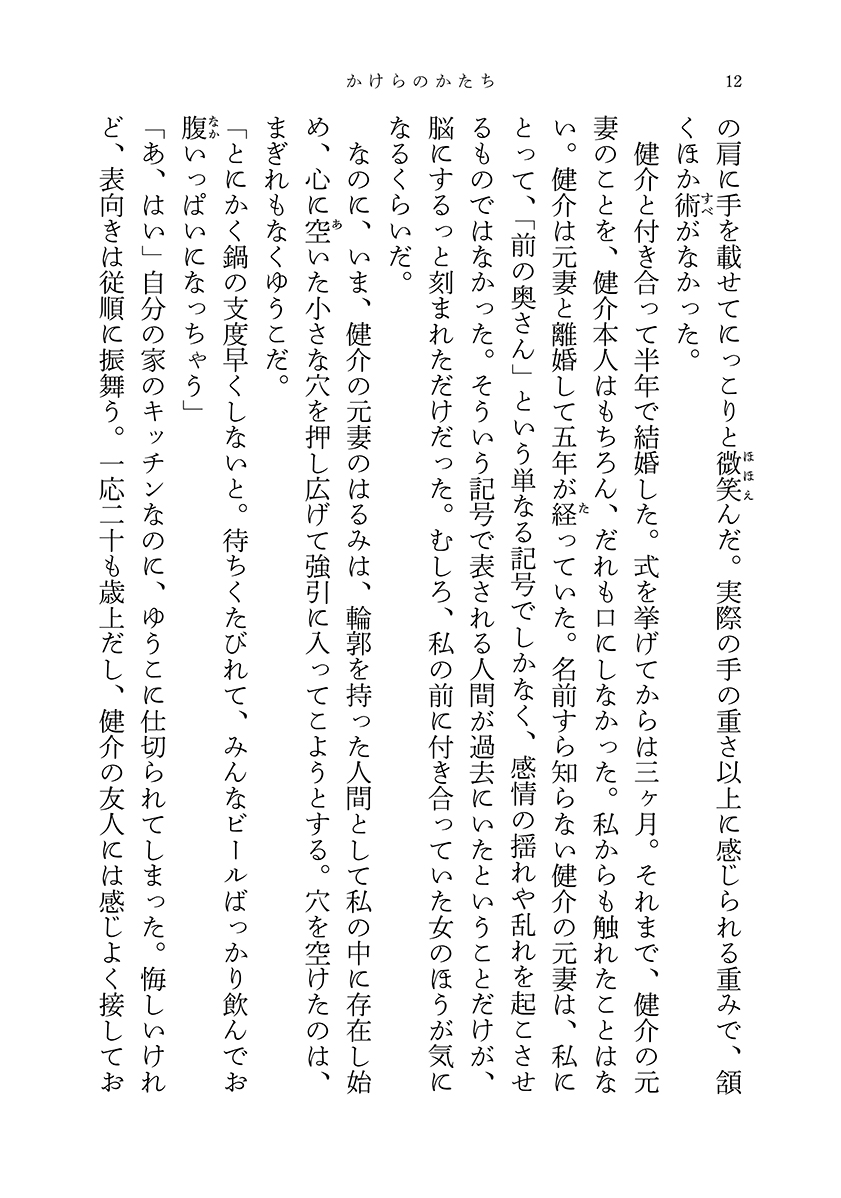 かけらのかたち
12
の肩に手を載せてにっこりと微笑んだ。実際の手の重さ以上に感じられる重みで、頷
くほか術がなかった。
健介と付き合って半年で結婚した。式を挙げてからは三ヶ月。それまで、健介の元
妻のことを、健介本人はもちろん、だれも口にしなかった。私からも触れたことはな
い。健介は元妻と離婚して五年が経っていた。名前すら知らない健介の元妻は、私に
とって、「前の奥さん」という単なる記号でしかなく、感情の揺れや乱れを起こさせ
るものではなかった。そういう記号で表される人間が過去にいたということだけが、
脳にするっと刻まれただけだった。むしろ、私の前に付き合っていた女のほうが気に
なるくらいだ。
なのに、いま、健介の元妻のはるみは、輪郭を持った人間として私の中に存在し始
め、心に空いた小さな穴を押し広げて強引に入ってこようとする。穴を空けたのは、
まぎれもなくゆうこだ。
「とにかく鍋の支度早くしないと。待ちくたびれて、みんなビールばっかり飲んでお
腹いっぱいになっちゃう」
「あ、はい」自分の家のキッチンなのに、ゆうこに仕切られてしまった。悔しいけれ
ど、表向きは従順に振舞う。一応二十も歳上だし、健介の友人には感じよく接してお